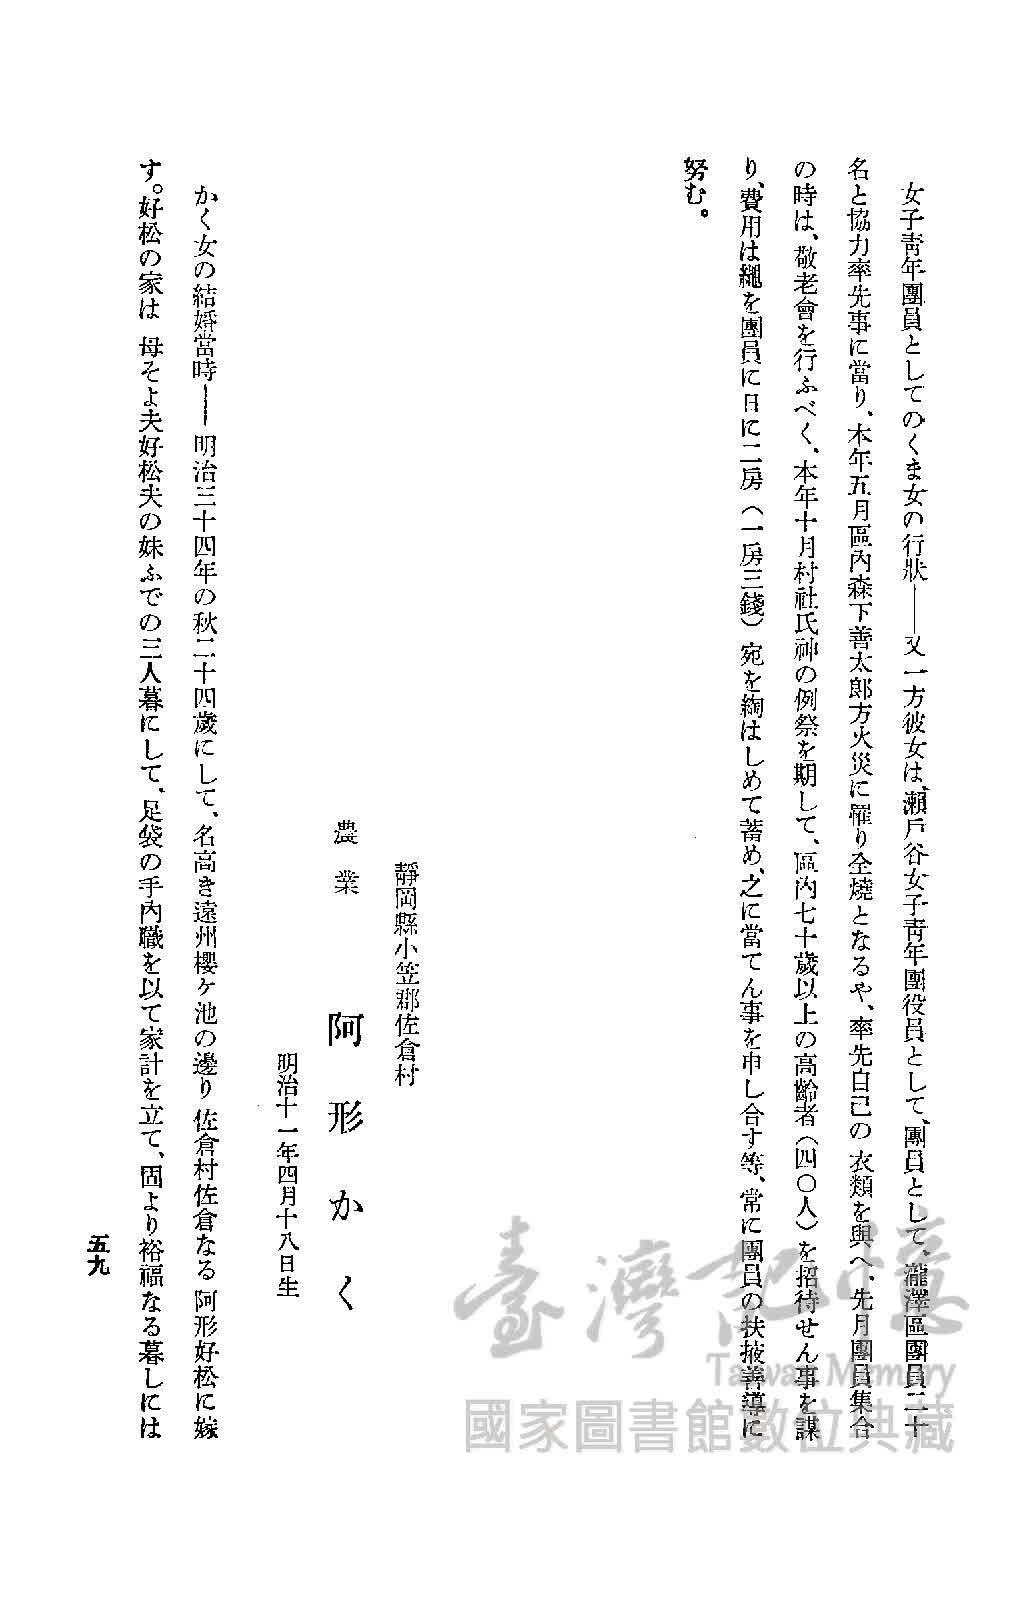 女子靑年團員としてのくま女の行狀――又一方彼女は、瀨戶谷女子靑年團役員として、團員として、瀧澤區團員二十
名と協力率先事に當り、本年五月區內森下善太郎方火災に罹り全燒となるや、率先自己の衣類を與へ、先月團員集合
の時は、敬老會を行ふべく、本年十月村社氏神の例祭を期して、區內七十歲以上の高齡者（四〇人）を招待せん事を謀
り、費用は繩を團員に日に二房（一房三錢）宛を綯はしめて蓄め、之に當てん事を申し合す等、常に團員の扶掖善導に
努む。
靜岡縣小笠郡佐倉村
農業 阿形かく
明治十一年四月十八日生
かく女の結婚當時――明治三十四年の秋二十四歲にして、名高き遠州櫻ケ池の邊り佐倉村佐倉なる阿形好松に嫁
す。好松の家は母そよ夫好松夫の妹ふでの三人暮にして、足袋の手內職を以て家計を立て、固より裕福なる暮しには
五九
臺灣記憶
Taiwan Memory
國家圖書館數位典藏